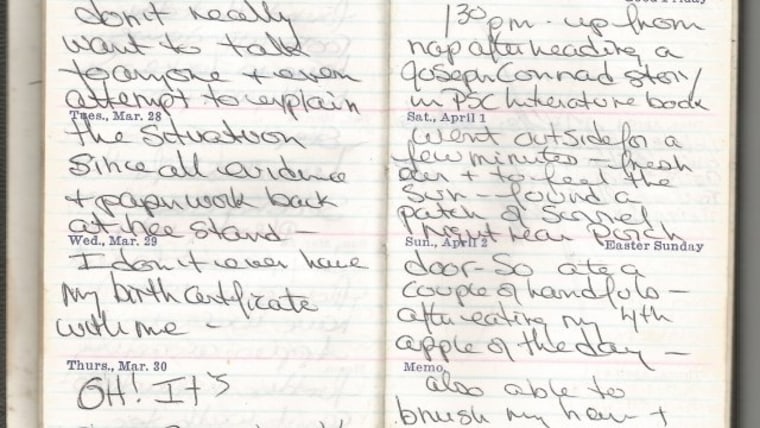 don't really
want to talk
to anyone + even
attempt to explain
Tues., Mar. 28
the situation
since all evidence
+ paperwork back
at tree stand —
Wed., Mar. 29
I don't ever have
my birth certificate
with me —
Thurs., Mar. 30
OH! It's
Good Friday
1 30 pm - up from
nap after reading a
Joseph Conrad story
in PSC literature book
Sat., April 1
Went outside for a
few minutes — fresh
air + to feel the
sun — found a
patch of sorrel
right near porch
Sun., April 2 Easter Sunday
door - so ate a
couple of handfuls —
after eating my 4th
apple of the day —
Memo
also able to
brush my hair +